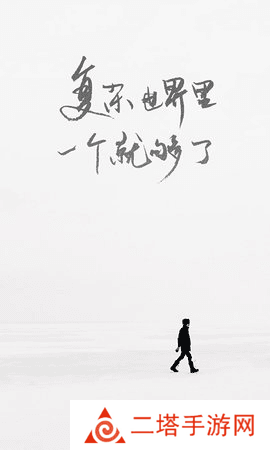 复杂世界里
一个就够了
二塔手游网